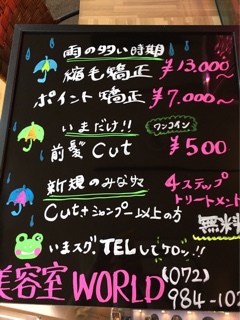 雨の多い時期
縮毛矯正 ¥13.000〜
ポイント矯正 ¥7.000〜
いまだけ!! ワンコイン
前髪 Cut ¥500
新規のみなサマ 4ステップ
トリートメント
Cut+シャンプー以上の方 無料
いまスグ!TELしてケロッ!!
美容室 WORLD (072)
984-102